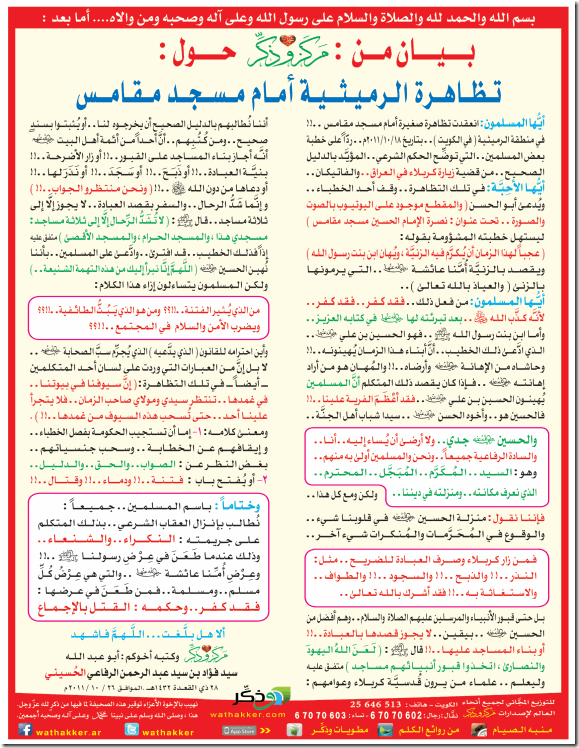 بسم الله والحمد لله والصلاة والسلام على رسول الله وعلى آله وصحبه ومن والاه.... أما بعد :
بيـان مـن : مركز وذكِّر حـول :
تظاهرة الرميثية أمام مسجد مقامس
أيُّها المسلمون: انعقدت تظاهرة صغيرة أمام مسجد مقامس ..!!
في منطقة الرميثية (في الكويت).. بتاريخ ٢٠١١/١٠/١٨م .. ردّاً على خطبة
بعض المسلمين..التي توضّح الحكم الشرعي..المؤيَّد بالدليل
الصحيح .. من قضية زيارة كربلاء في العراق..والفاتيكان..
أيُّها الأحِبَّة: في تلك التظاهرة .. وقف أحد الخطباء..
ويُدعى أبو الحسن (والمقطع موجود على اليوتيوب بالصوت
والصورة .. تحت عنوان : نصرة الإمام الحسين مسجد مقامس)
ليستهل خطبته المشؤومة بقوله :
(عجباً لهذا الزمان أن يُكرَّم فيه الزنيَّة ، ويُهان ابن بنت رسول الله)
ويقصد بالزنيَّة أُمَّنا عائشة ..التي يرمونها
بالزنى (والعياذ بالله تعالى) ..
أيُّها المسلمون: من فعل ذلك.. فقد كفر .. فقد كفر..
لأنَّه كذَّب الله .. بعد تبرئته لها في كتابه العزيز..
وأما ابن بنت رسول الله .. فهو الحسين بن علي
الذي ادَّعى ذلك الخطيب..أنَّ أبناء هذا الزمان يُهينونه..!!
وحاشاه من الإهانة وأرضاه..!! والمُهان هو من أراد
إهانته .. فإذا كان يقصد ذلك المتكلم أنَّ المسلمين
يُهينون الحسين بن علي .. فقد أعظَمَ الفرية علينا..!!
فالحسين هو.. وأخوه الحسن .. سيدا شباب أهل الجنَّة..
والحسين جدي.. ولا أرضى أن يُساء إليه..أنا..
والسادة الرفاعية جميعاً.. ونحن والمسلمين أولىٰ به منهم..
وهو : السيد .. المُكَرَّم .. المُبَجَّل .. المحترم ..
الذي نعرف مكانته .. ومنزلته في ديننا .. ولكن ومع كل هذا..
فإننا نقول : منزلة الحسين في قلوبنا شيء..
والوقوع في المُحَرَّمات والمُنكرات شيء آخر..
فمن زار كربلاء وصرف العبادة للضريح .. مثل :
النذر..!! والذبح ..!! والسجود ..!! والطواف..
والاستغاثة به ..!! فقد أشرك بالله تعالىٰ ..
بل حتى قبور الأنبياء والمرسلين عليهم الصلاة والسلام.. وهم أفضل من
الحسين .. بيقين .. لا يجوز قصدها بالعبادة ..!!
أو بناء المساجد عليها .. قال : ( لعنَ اللهُ اليهودَ
والنصارى ، اتخذوا قبور أنبيائهم مساجد ) متفق عليه
وليعلم.. علماء من يرون قدسية كربلاء وعوامهم :
أننا نُطالبهم بالدليل الصحيح أن يخرجوه لنا .. أو يُثبتوا بسندٍ
صحيح.. ومن كُتُبِهم.. أنَّ أحداً من أئمة أهل البيت
أنَّه أجاز بناء المساجد على القبور..!! أو زار الأضرحة..!!
بنيَّة العبادة..!! أو ذبَحَ ..!! أو سَجَدَ ..!! أو نَذَرَ لها ..!!
أو دعاها من دون الله ..!! ( ونحن منتظرو الجواب..!! )
و إنَّما شَدُّ الرحال.. والسفر بقصد العبادة.. لا يجوز إلَّا إلى
ثلاثة مساجد.. قال : ( لا تُشَدُّ الرِّحالُ إلَّا إلى ثلاثة مساجد :
مسجدي هذا ، والمسجد الحرام ، والمسجد الأقصىٰ ) متفق عليه
إذاً فذلك الخطيب.. قد افترى.. وادَّعى على المسلمين.. بأننا
نُهين الحسين ( اللَّهمَّ إنَّا نبرأ إليك من هذه التهمة الشنيعة..)
ولكن المسلمون يتساءلون إزاء هذا الكلام :
من الذي يُثير الفتنة..!!؟؟ ومن هو الذي يَبُثُّ الطائفية..!!؟؟
ويضرب الأمن والسلام في المجتمع..!!؟؟
وأين احترامه للقانون ( الذي يدَّعيه ) الذي يُجرِّم سبَّ الصحابة ..
لا بل إنَّ من العبارات التي وردت على لسان أحد المتكلمين
.. أيضاً .. في تلك التظاهرة : ( إنَّ سيوفنا في بيوتنا..
في غمدها.. تنتظر سيدي ومولاي صاحب الزمان.. فلا يتجرأ
علينا أحد .. حتى تُسحب هذه السيوف من غمدها..!! )
ومعنىٰ كلامه : ١- إما أن تستجيب الحكومة بفصل الخطباء..
و إيقافهم عن الخطابة.. وسحب جنسياتهم ..
بغض النظر عن : الصواب.. والحق.. والدليل..
٢- أو يُفتح باب : فتنة ..!! ودماء ..!! وقتال ...!!
وختاماً : باسم المسلمين .. جميعاً :
نُطالب بإنزال العقاب الشرعي.. بذلك المتكلم
على جريمته : النكراء .. والشنعاء ..
وذلك عندما طَعَنَ في عِرْضِ رسولنا ..!!
وعِرْضِ أُمِّنا عائشة .. والتي هي عِرْضُ كُلِّ
مسلم.. ومسلمة.. فمن طَعَنَ في عرضها :
فقد كفر .. وحكمه : القتل بالإجماع
ألا هل بلَّغت... اللَّهمَّ فاشهد
مركز وذكِّر وكتبه أخوكم : أبو عبد الله
سيد فؤاد بن سيد عبد الرحمن الرفاعي الحُسيني
٢٨ ذي القعدة ١٤٣٢هـ. الموافق ٢٦ / ١٠ / ٢٠١١م
للتوزيع المجّاني لجميع أنحاء العالم لإصدارات مركز وذكِّر
الكويت - هاتف : 25 646 513
نقّال: رجال: 6 70 70 602 - نساء: 6 70 70 603
وذكِّر
wathakker.com
نهيب بالإخوة الأعزاء توقير هذه الصحيفة لما فيها من ذكر لله عزّ وجل.
هذا ، وصلى الله وسلم على نبينا محمد وعلى آله وصحبه أجمعين.
منبه الصيام من روائع الكلم مطويات وذكِّر App Store wathakker wathakker.ar